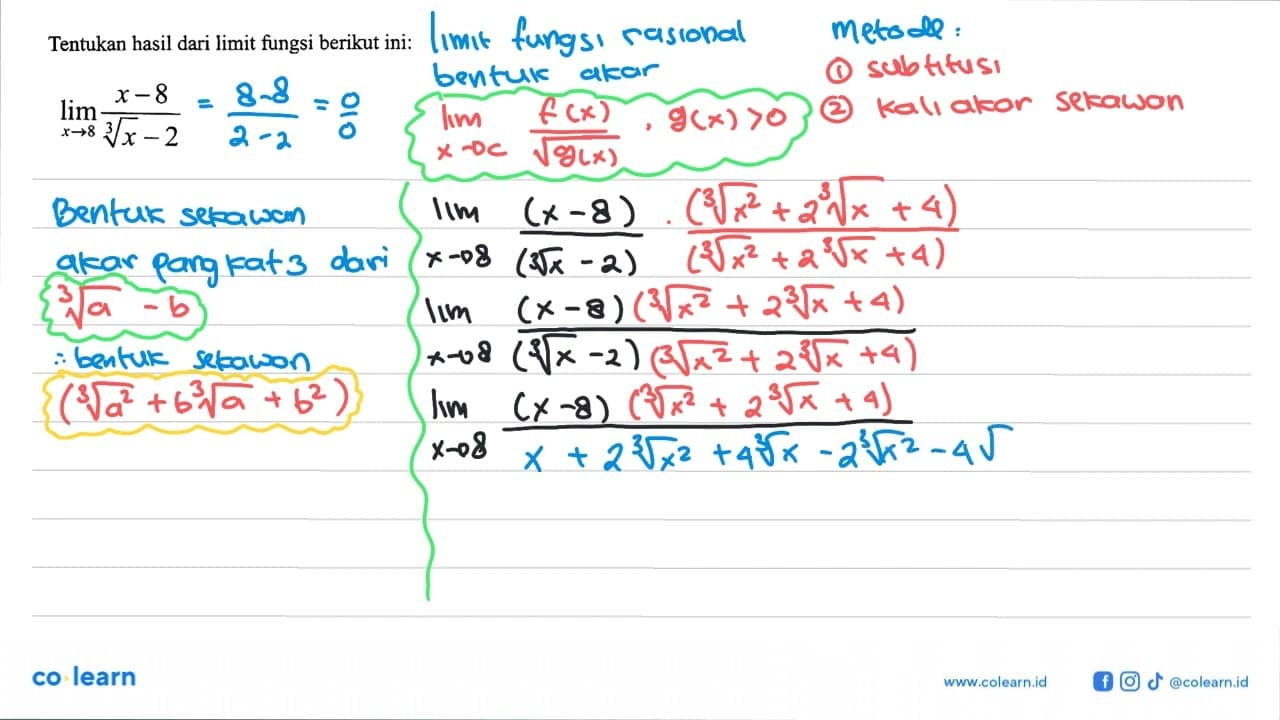 Tentukan hasil dari limit fungsi berikut ini:
lim x→8 (x − 8)/(∛x − 2) = (8-8)/(2-2) = 0/0
limit fungsi rasional
bentuk akar
lim x→c f(x)/√g(x) , g(x) > 0
metode :
① subtitusi
② kali akar sekawan
Bentuk sekawan
akar pangkat 3 dari
∛a - b
∴ bentuk sekawan
(∛a² + b∛a + b²)
lim x→8 (x-8)/(∛x - 2) . (∛x² + 2∛x + 4)/(∛x² + 2∛x + 4)
lim x→8 (x-8)(∛x² + 2∛x + 4)/(∛x - 2)(∛x² + 2∛x + 4)
lim x→8 (x-8)(∛x² + 2∛x + 4)/x + 2∛x² + 4∛x - 2∛x² - 4√
co·learn
www.colearn.id
@colearn.id